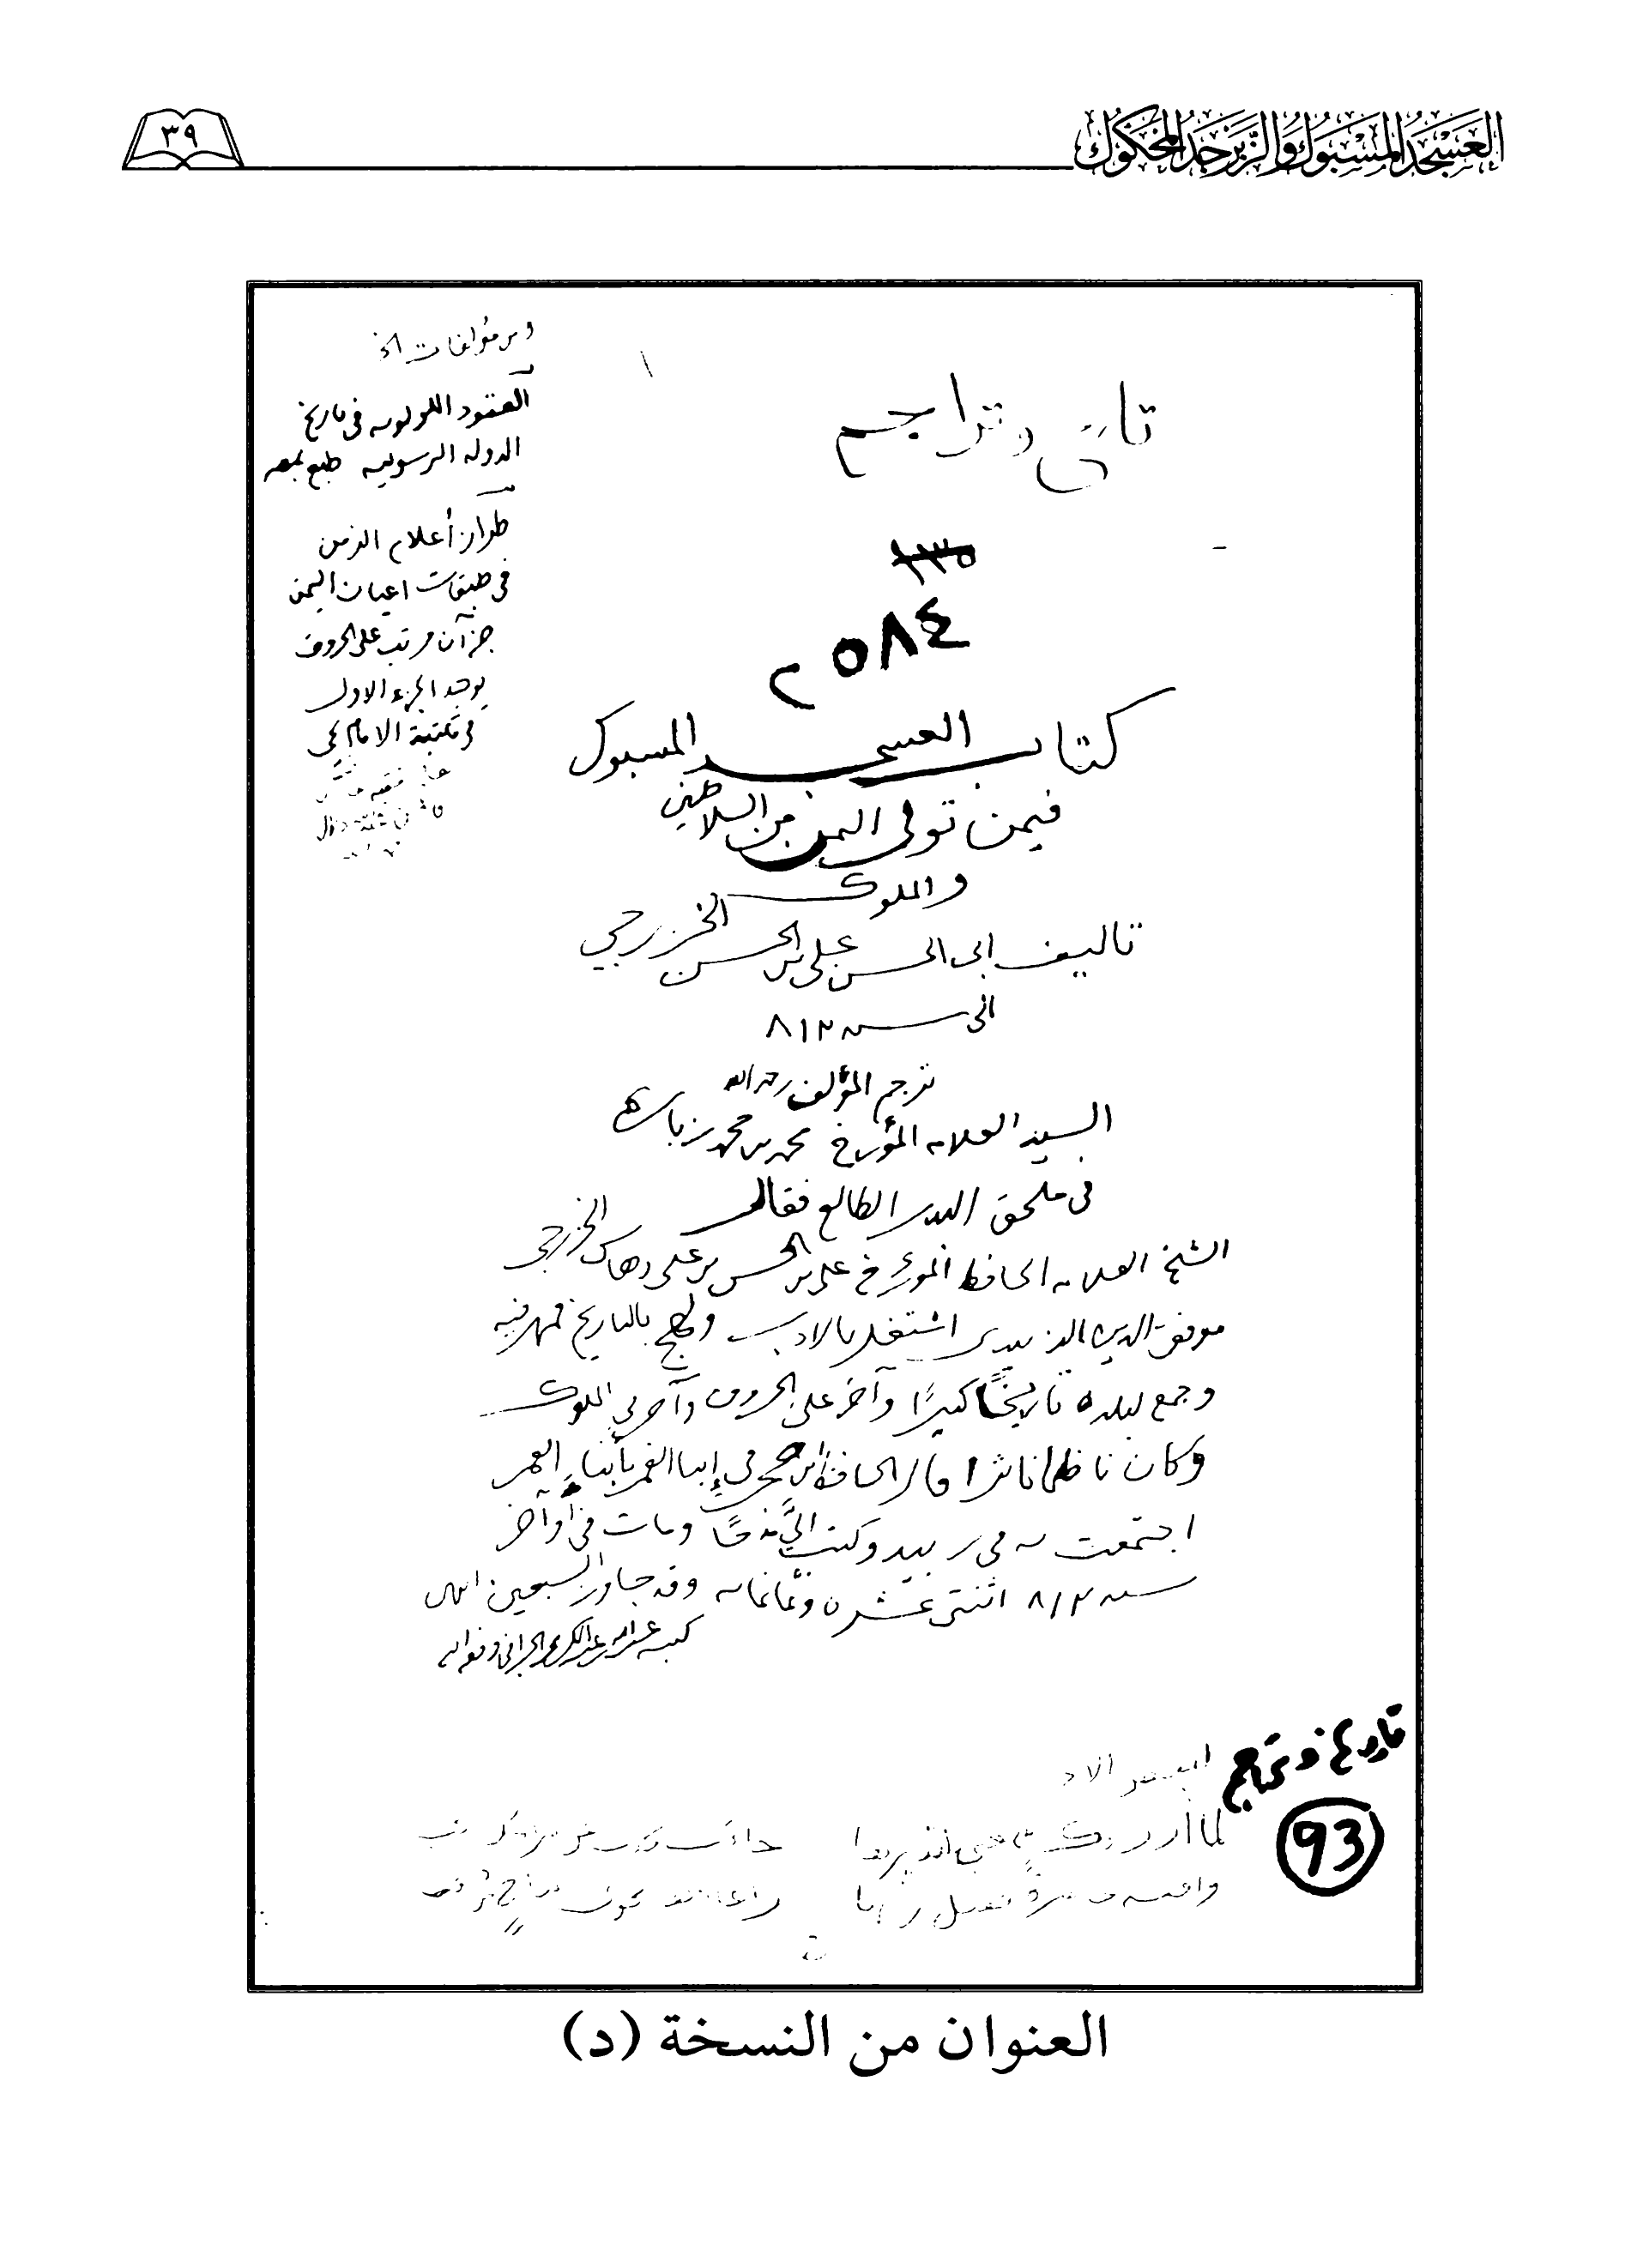 العسجد المسبوك والزبرجد المحكوك
٣٩
تاريخ وتراجم
٢٥٨٤
كتاب العسجد المسبوك
فيمن تولى اليمن من السلاطين
والملوك
تاليف ابى الحسن على بن الحسن الخزرجي
الى سنه ٨١٢
ترجم المؤلف رحمه الله
السيد العلامه المؤرخ محمد بن محمد زباره
فى ملحق البدر الطالع فقال
الشيخ العلامه الحافظ المؤرخ على بن الحسن بن على وهاس الخزرجى
موفق الدين الزبيدى اشتغل بالادب ولهج بالتاريخ فمهر فيه
وجمع لبلده تاريخًا كبيرًا وآخر على الحروف وآخر في الملوك
وكان ناظما ناثرا قال الحافظ ابن حجر في إنباء الغمر بأنباء العمر
اجتمعت به في زبيد وكتب اليّ مدحًا ومات في أواخر
سنه ٨١٢ اثنتى عشره وثمانمائه وقد جاوز السبعين انتهى
كتبه عبدالله عبدالكريم الجرافى وفقه الله
ومن مؤلفات الخ
العقود اللولويه فى تاريخ
الدوله الرسوليه طبع بمصر
طراز أعلام الزمن
في طبقات اعيان اليمن
جزآن مرتب على الحروف
يوجد الجزء الاول
في مكتبة الامام يحيى
تاريخ وتراجم
93
العنوان من النسخة (د)